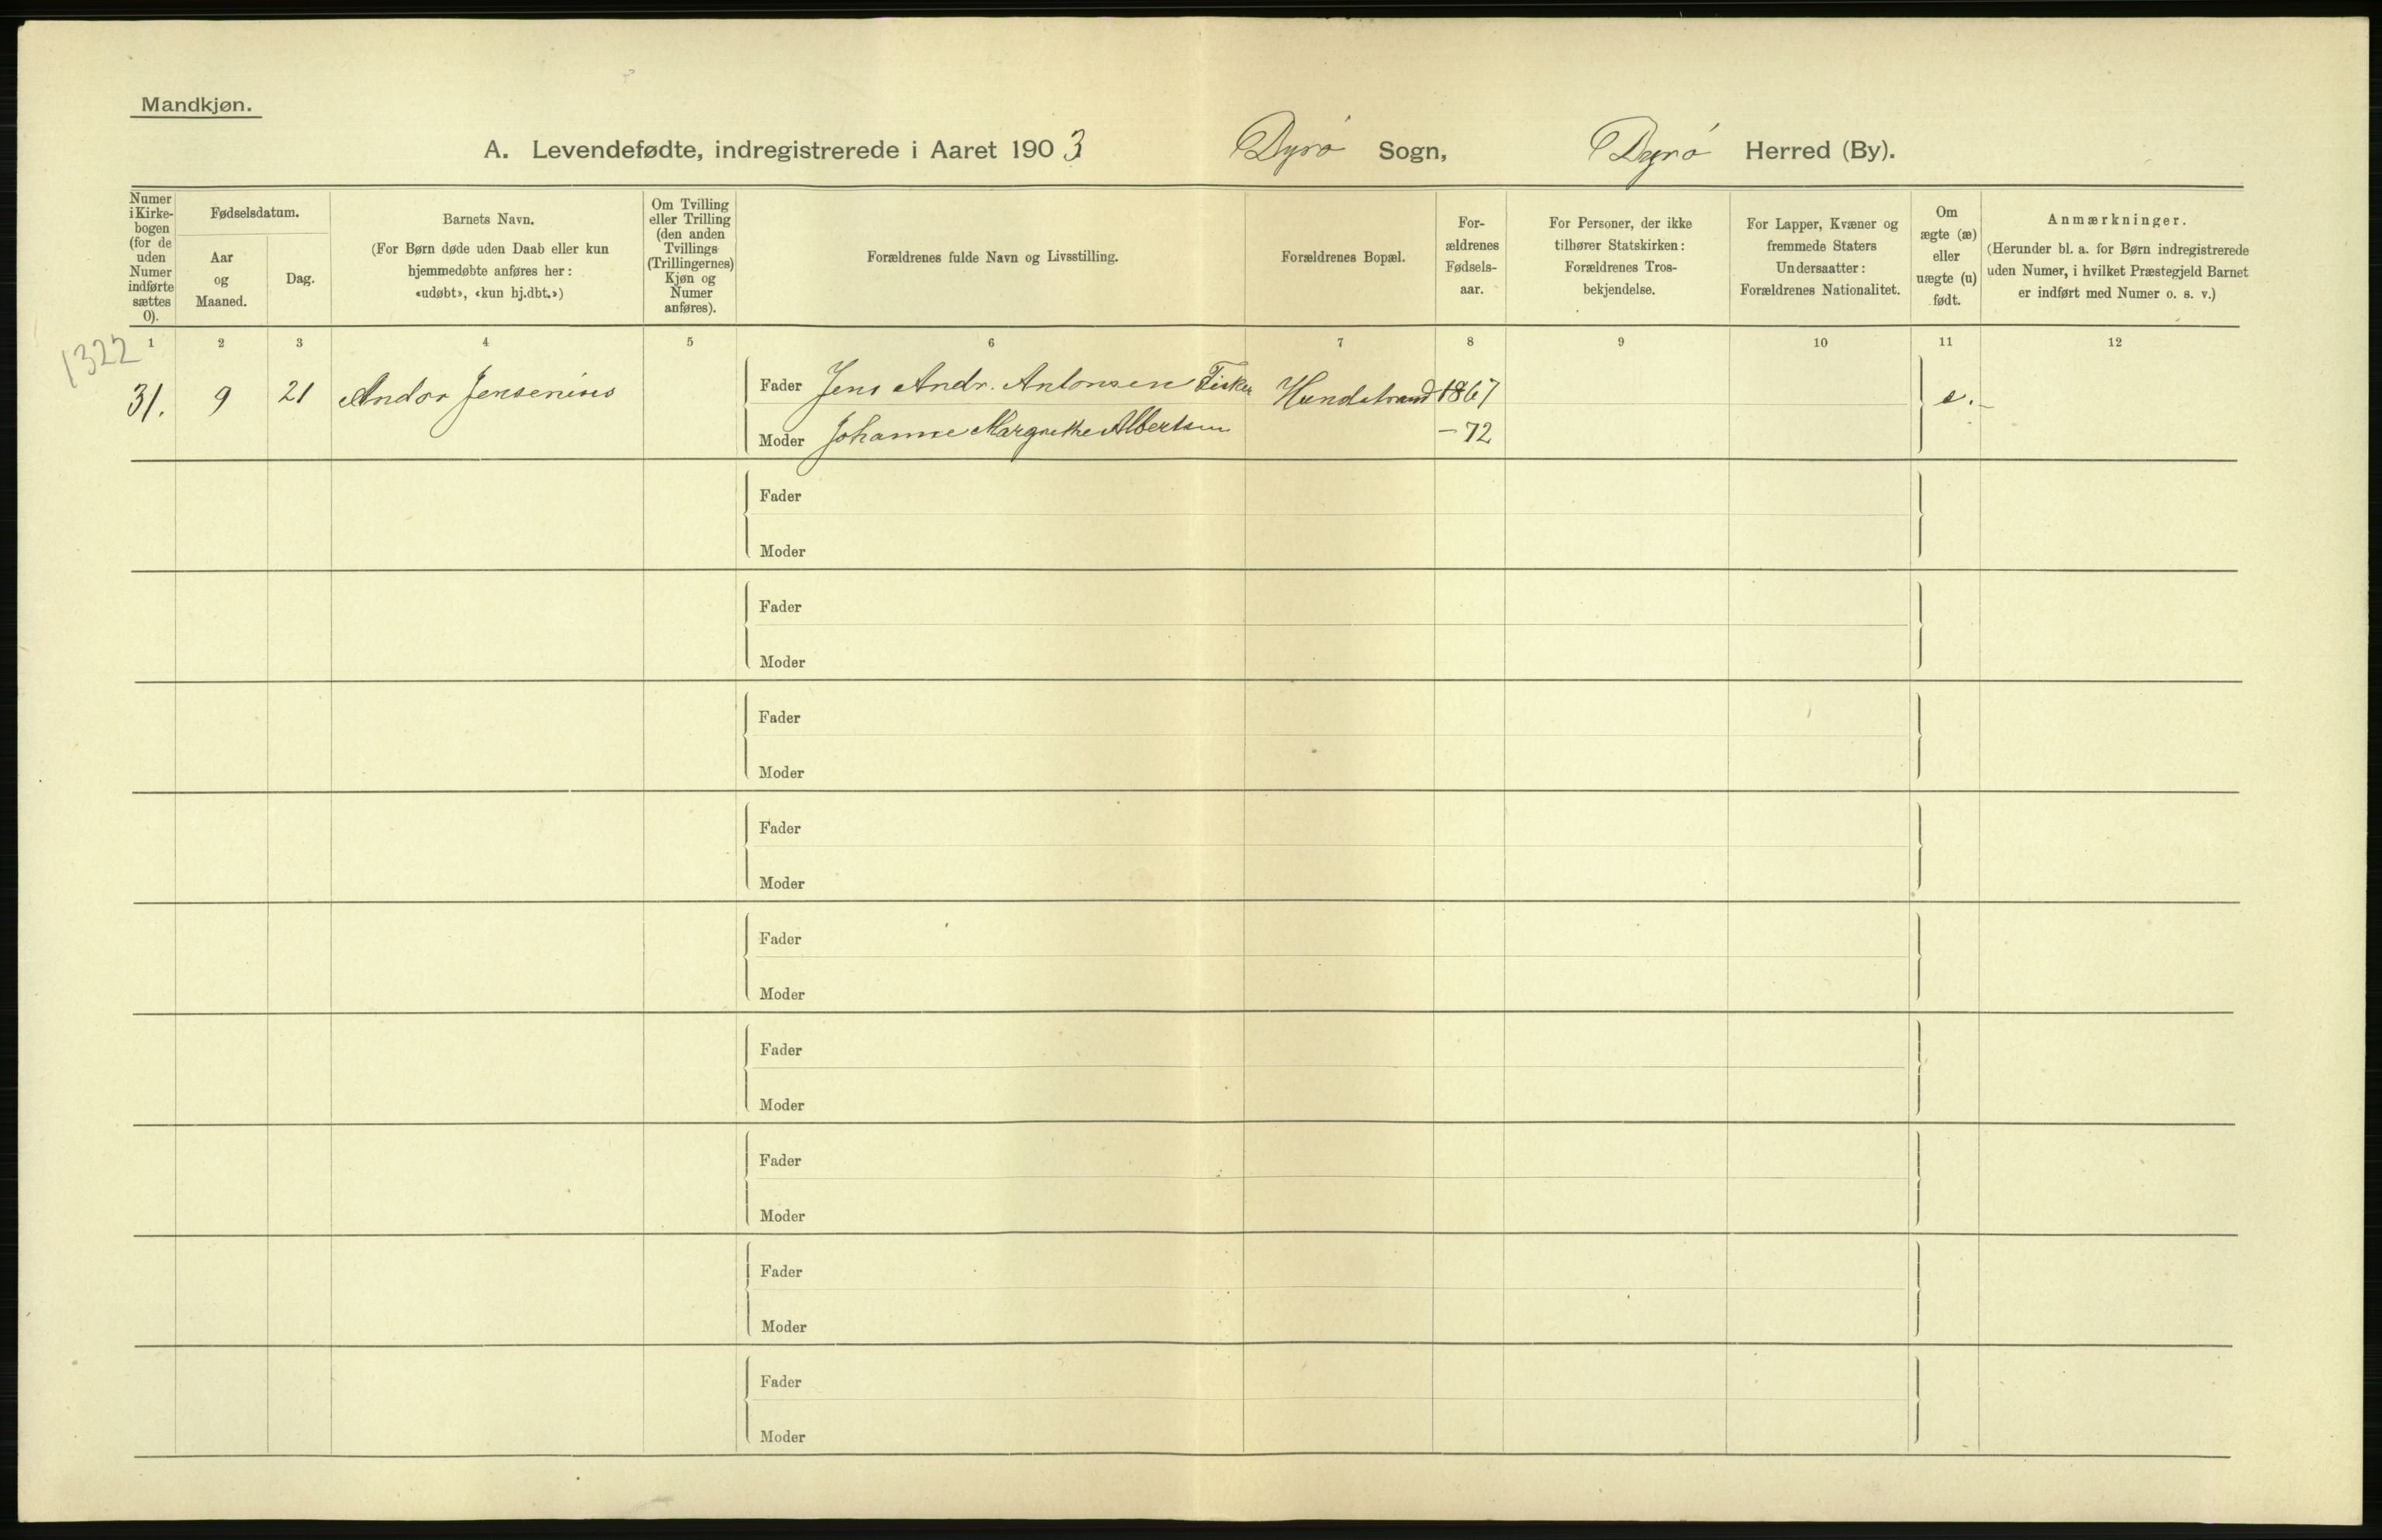 Mandkjøn.
A. Levendefødte, indregistrerede i Aaret 1903 Dyrø Sogn, Dyrø Herred (By).
Numer i Kirkebogen (for de uden Numer indførte sættes 0).
Fødselsdatum.
Aar og Maaned.
Dag.
Barnets Navn.
(For Børn døde uden Daab eller kun
hjemmedøbte anføres her:
«udøbt», «kun hj.dbt.»)
Om Tvilling
eller Trilling
(den anden
Tvillings
(Trillingernes)
Kjøn og
Numer
anføres).
Forældrenes fulde Navn og Livsstilling.
Forældrenes Bopæl.
For-
ældrenes
Fødsels-
aar.
For Personer, der ikke
tilhører Statskirken:
Forældrenes Tros-
bekjendelse.
For Lapper, Kvæner og
fremmede Staters
Undersaatter:
Forældrenes Nationalitet.
Om
ægte (æ)
eller
uægte (u)
født.
Anmærkninger.
(Herunder bl. a. for Børn indregistrerede
uden Numer, i hvilket Præstegjeld Barnet
er indført med Numer o. s. v.)
1 2 3 4 5 6 7 8 9 10 11 12
1322
31. 9 21 Andor Jensenius Fader Jens Andr. Antonsen Fisker Hundstrand 1867
Moder Johanne Margrethe Albertsen – 72
Fader
Moder
Fader
Moder
Fader
Moder
Fader
Moder
Fader
Moder
Fader
Moder
Fader
Moder
Fader
Moder
Fader
Moder